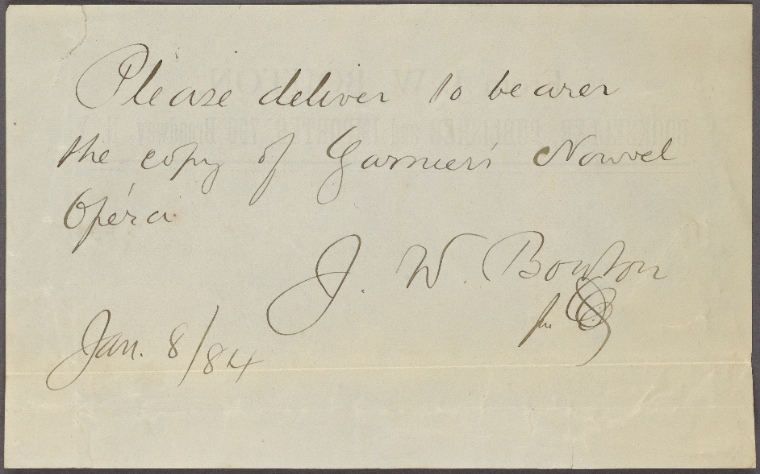 Please deliver to bearer
the copy of Garnier's Nouvel
Opéra
J. W. Bouton
Jan. 8/84